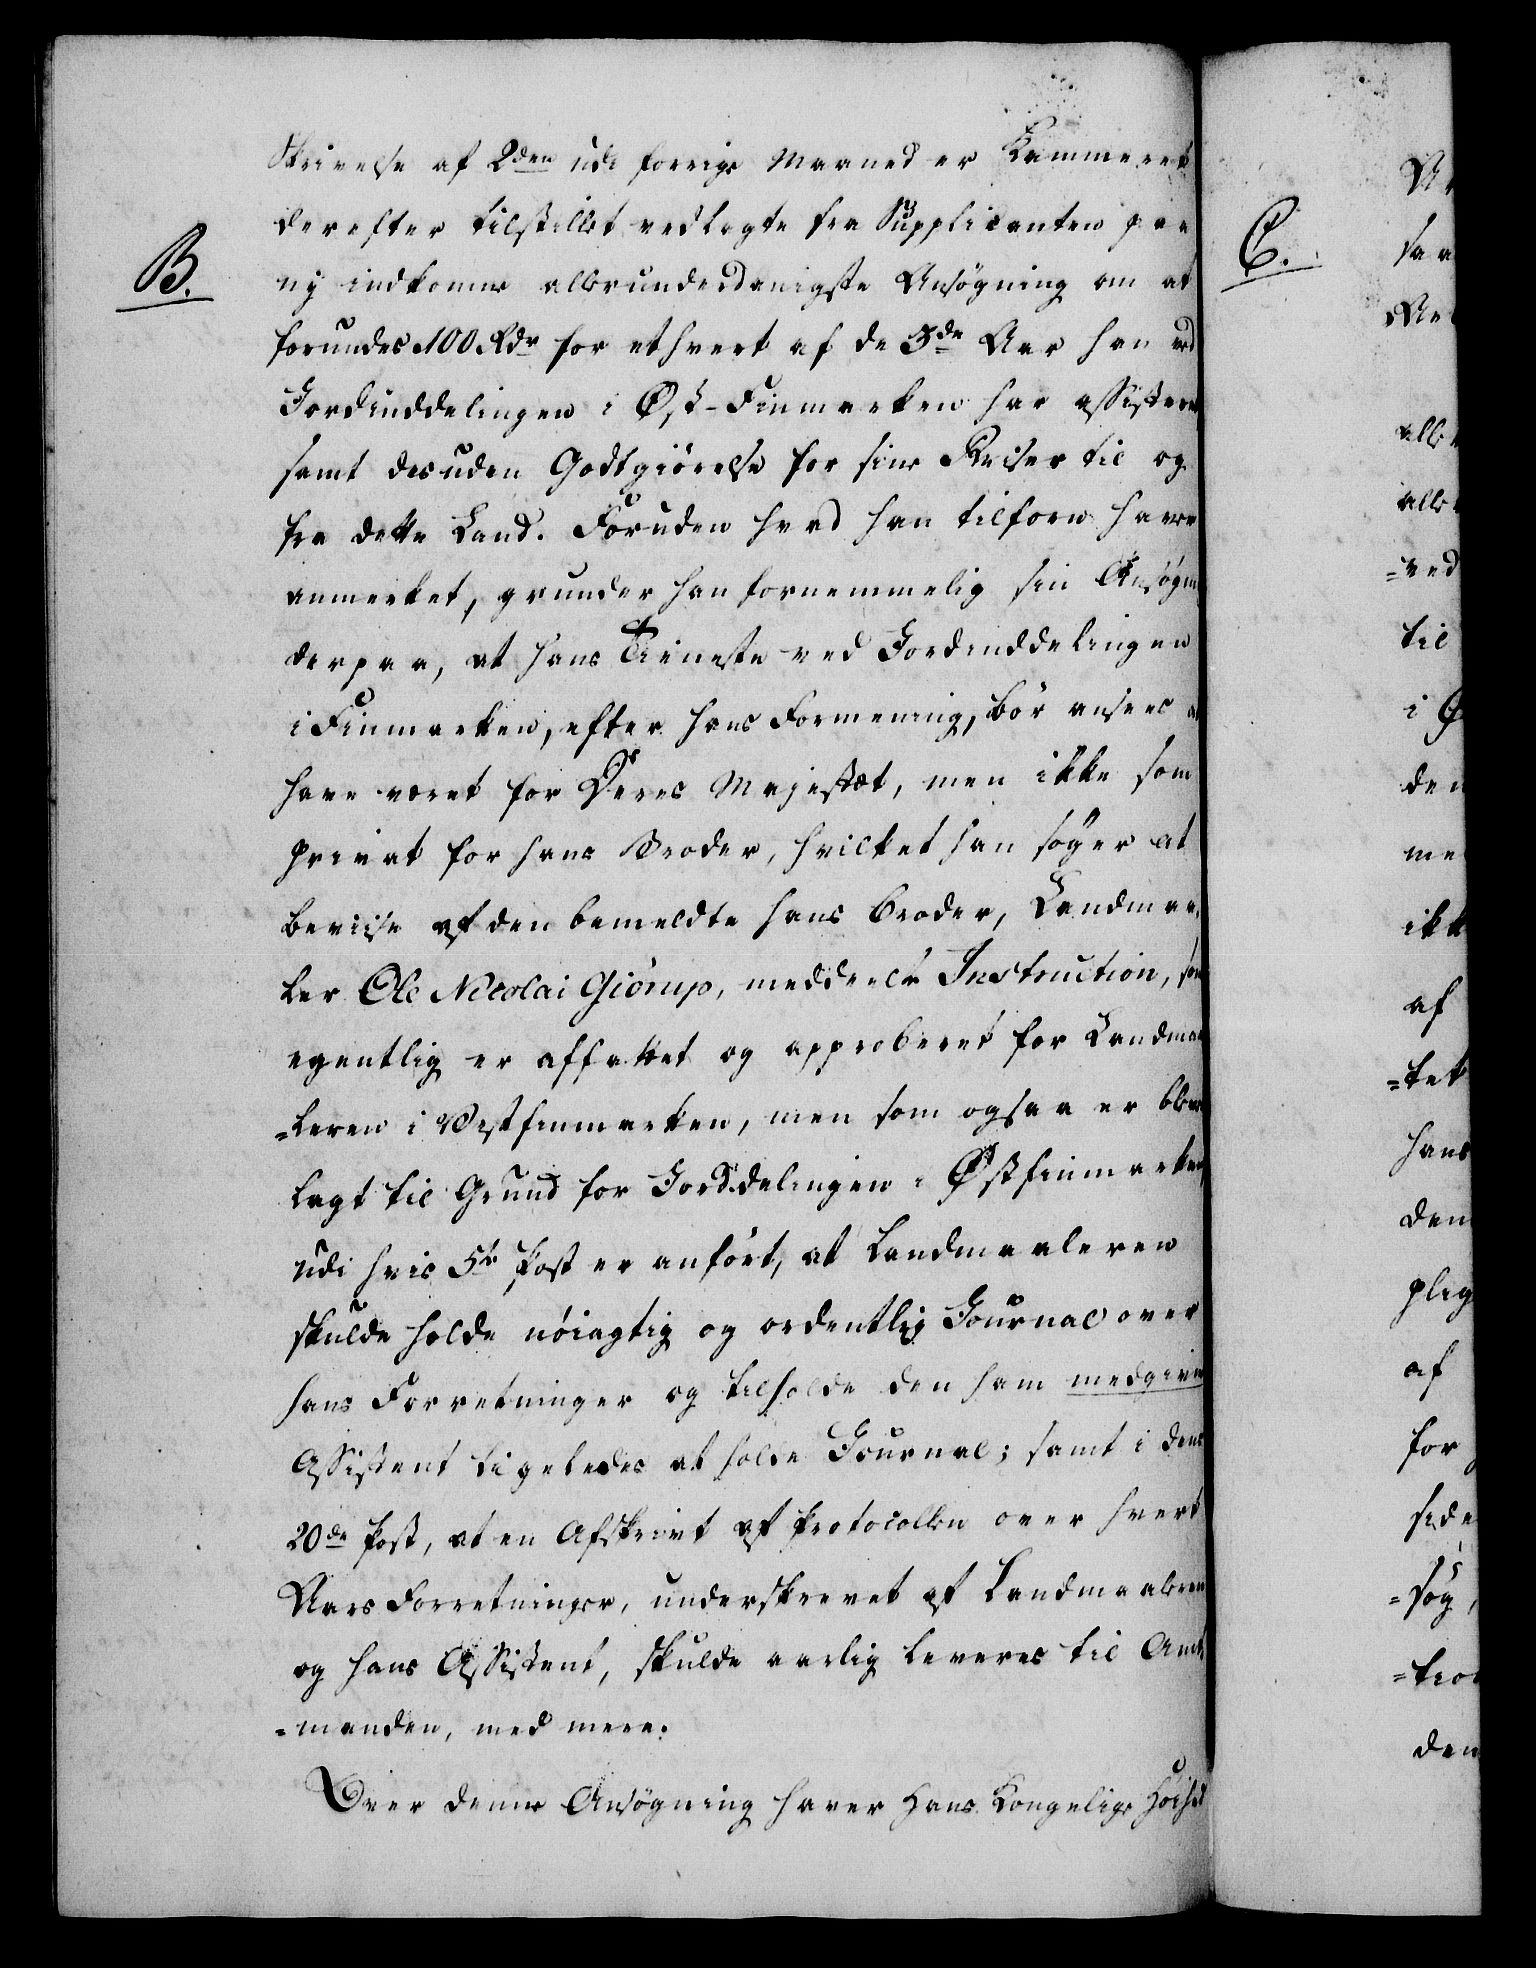 Skrivelse af 2den udi forrige Maaned er Kammeret
derefter tilstillet vedlagte fra Supplicanten paa
B.
ny indkomne allerunderdanigste Ansøgning om at
forundes 100 Rdr for ethvert af de 3de Aar han ved
Jordinddelingen i Øst-Finmarken har assisteret
samt desuden Godtgiörelse for sine Reiser til og
fra dette Land. Foruden hvad han tilforn haver
anmerket, grunder han fornemmelig sin Ansøgn
derpaa, at hans Tieneste ved Jordinddelingen
i Finmarken, efter hans Formening, bör ansees at
have været for Deres Majestæt, men ikke som
privat for hans Broder, hvilket han søger at
bevise af den bemeldte hans Broder, Landmaa-
ler Ole Nicolai Giörup, meddeelte Instruction, som
egentlig er affattet og approberet for Landmaa
=leren i Vestfinmarken, men som ogsaa er bleven
lagt til Grund for Jorddelingen i Østfinmarken,
udi hvis 5te Post er anfört, at Landmaaleren
skulde holde nöiagtig og ordentlig Journal over
hans Forretninger og tilholde den ham medgivne
Assistent ligeledes at holde Journal; samt i dens
20de Post, at en Afskrivt af Protocollen over hvert
Aars Forretninger, underskrevet af Landmaaleren
og hans Assistent, skulde aarlig leveres til Amt
=manden, med mere.
Over denne Ansøgning haver Hans Kongelige Höihed
C.
saa
aller
aller
=ved
til
den
me
ikk
af
=tet
hans
den
pleg
af
for
side
=søg
=tion
den